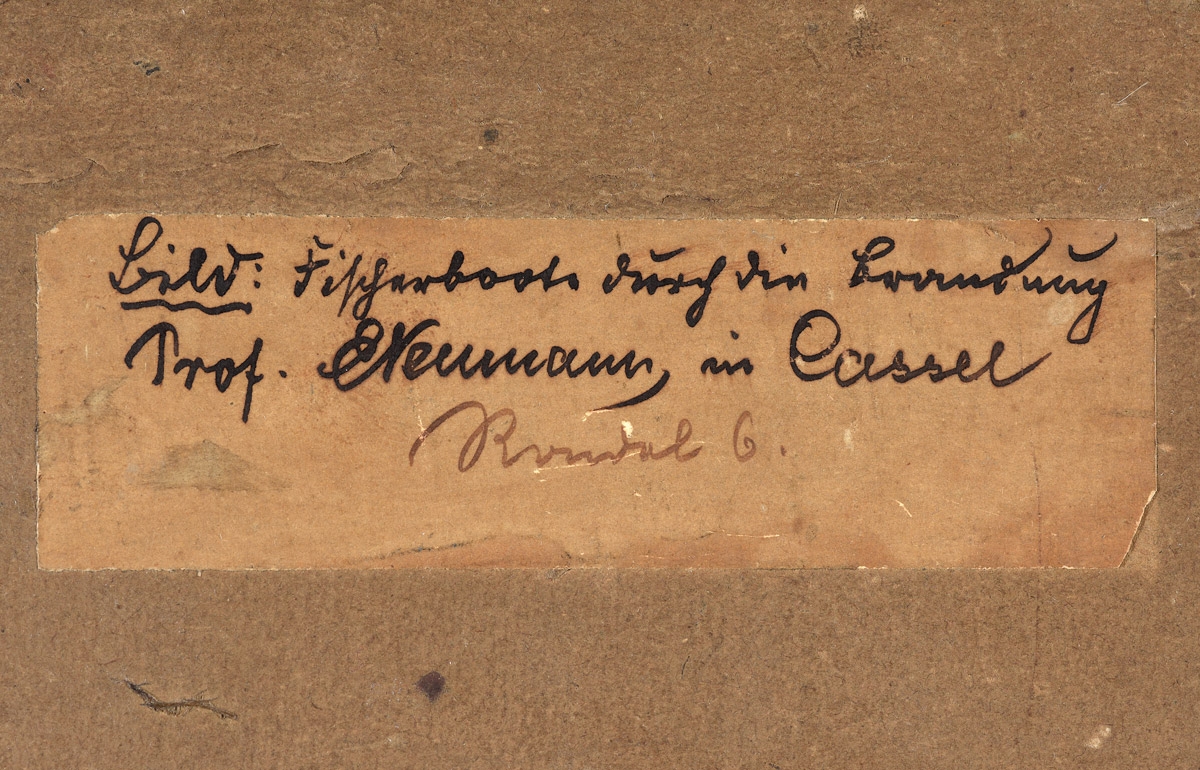 Bild: Fischerboote durch die Brandung
Prof. ENeumann, in Cassel
Rondel 6.